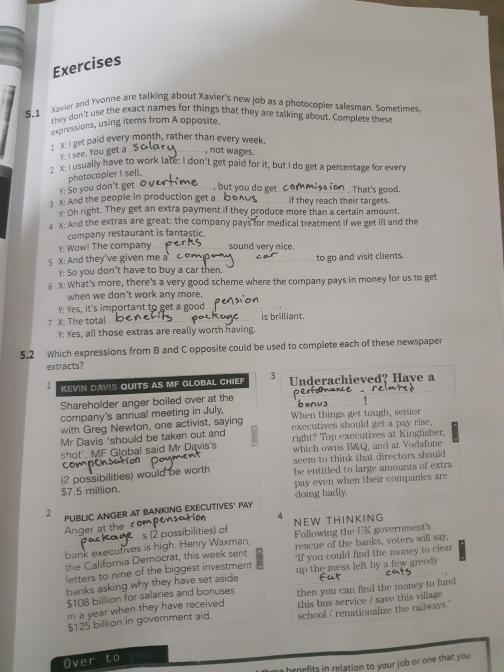 Exercises
5.1 Xavier and Yvonne are talking about Xavier's new job as a photocopier salesman. Sometimes,
they don't use the exact names for things that they are talking about. Complete these
expressions, using items from A opposite.
1 X: I get paid every month, rather than every week.
Y: I see. You get a salary , not wages.
2 X: I usually have to work late: I don't get paid for it, but I do get a percentage for every
photocopier I sell.
Y: So you don't get overtime , but you do get commission . That's good.
3 X: And the people in production get a bonus if they reach their targets.
Y: Oh right. They get an extra payment if they produce more than a certain amount.
4 X: And the extras are great: the company pays for medical treatment if we get ill and the
company restaurant is fantastic.
Y: Wow! The company perks sound very nice.
5 X: And they've given me a company car to go and visit clients.
Y: So you don't have to buy a car then.
6 X: What's more, there's a very good scheme where the company pays in money for us to get
when we don't work any more.
Y: Yes, it's important to get a good pension .
7 X: The total benefits package is brilliant.
Y: Yes, all those extras are really worth having.
5.2 Which expressions from B and C opposite could be used to complete each of these newspaper
extracts?
1 KEVIN DAVIS QUITS AS MF GLOBAL CHIEF
Shareholder anger boiled over at the
company's annual meeting in July,
with Greg Newton, one activist, saying
Mr Davis 'should be taken out and
shot'. MF Global said Mr Davis's
compensation payment
(2 possibilities) would be worth
$7.5 million.
2 PUBLIC ANGER AT BANKING EXECUTIVES' PAY
Anger at the compensation
package s (2 possibilities) of
bank executives is high. Henry Waxman,
the California Democrat, this week sent
letters to nine of the biggest investment
banks asking why they have set aside
$108 billion for salaries and bonuses
in a year when they have received
$125 billion in government aid.
3 Underachieved? Have a
perfomance - related
bonus !
When things get tough, senior
executives should get a pay rise,
right? Top executives at Kingfisher,
which owns B&Q, and at Vodafone
seem to think that directors should
be entitled to large amounts of extra
pay even when their companies are
doing badly.
4 NEW THINKING
Following the UK government's
rescue of the banks, voters will say,
'If you could find the money to clear
up the mess left by a few greedy
fat cats ,
then you can find the money to fund
this bus service / save this village
school / renationalize the railways.'
Over to
benefits in relation to your job or one that you